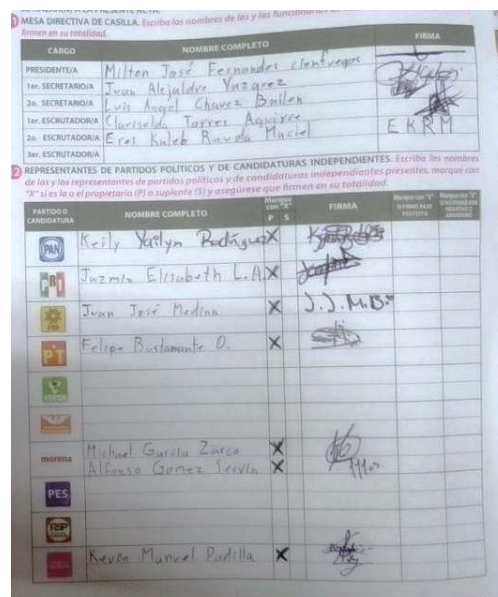 MESA DIRECTIVA DE CASILLA. Escriba los nombres de las y los
firmen en su totalidad.
CARGO NOMBRE COMPLETO FIRMA
PRESIDENTE/A Milton José Fernandes cienfuegos
1er. SECRETARIO/A Juan Alejaldre Vazquez
2o. SECRETARIO/A Luis Angel Chavez Bailen
1er. ESCRUTADOR/A Clariselda Torres Aquixie
2o. ESCRUTADOR/A Eros Kaleb Ravda Maciel E K R M
3er. ESCRUTADOR/A
2 REPRESENTANTES DE PARTIDOS POLÍTICOS Y DE CANDIDATURAS INDEPENDIENTES. Escriba los nombres
de las y los representantes de partidos políticos y de candidaturas independientes presentes, marque con
"X" si es la o el propietario (P) o suplente (S) y asegúrese que firmen en su totalidad.
PARTIDO O CANDIDATURA NOMBRE COMPLETO Marque con "X" P S FIRMA
PAN Keily Yailyn Rodríguez X
PRI Jazmin Elisabeth L.A. X
PRD Juan José Medina X J.J.M.B.
PT Felipe Bustamante O. X
VERDE
morena Michael García Zarco X
Alfonso Gomez Servin X
PES
RSP
Keven Manuel Padilla X